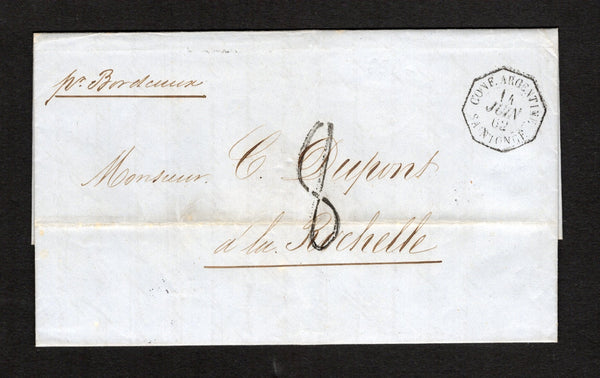 pr. Bordeaux
CONF. ARGENTINE
14
JUIN
62
SAINTONGE
Monsieur C. Dupont
8
à la Rochelle